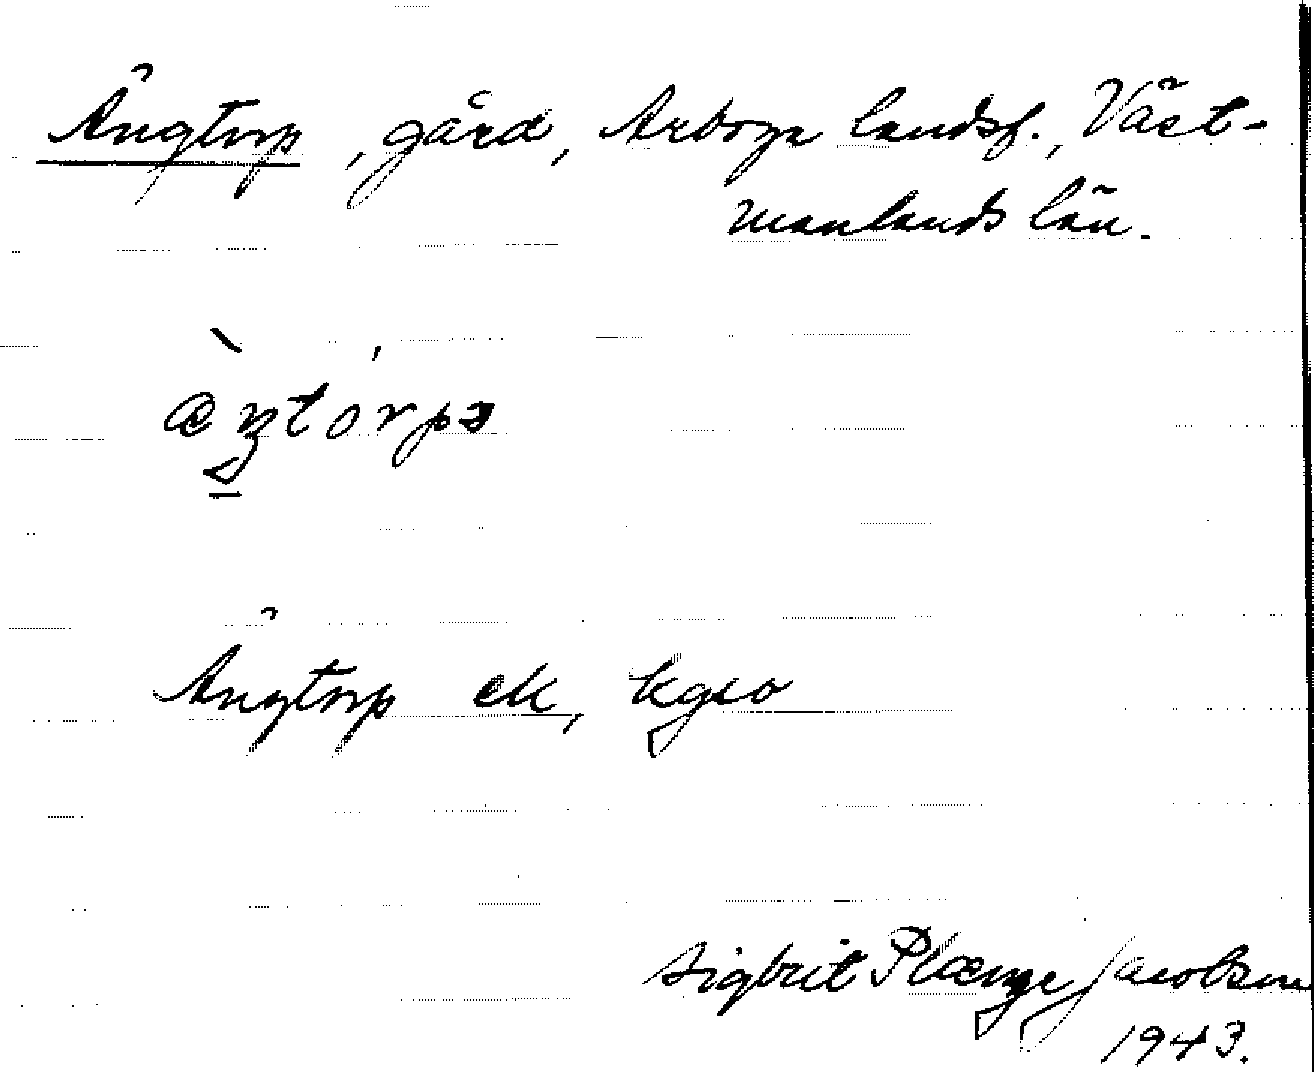 Ängtorp, gård, Arboga landsf., Väst-
manlands län.
Ängtorp ek, kgso
Sigbrit Plænge Jacobson
1943.